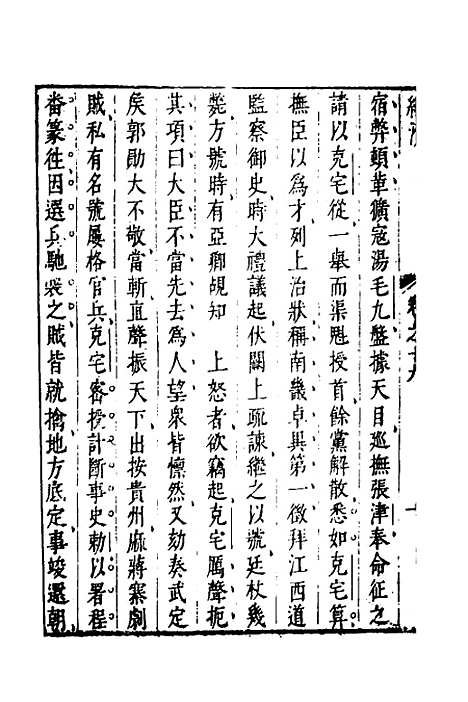 宿弊頓革獷寇湯毛九盤據天目巡撫張津奉命征之
請以克宅從一舉而渠魁授首餘黨解散悉如克宅算
撫臣以為才列上治狀稱南畿卓異第一徵拜江西道
監察御史時大禮議起伏闕上疏諫繼之以號廷杖幾
斃方號時有亞卿覘知　上怒者欲竊起克宅厲聲扼
其項曰大臣不當先去為人望衆皆懍然又劾奏武定
矦郭勛大不敬當斬直聲振天下出按貴州麻蔣寨劇
賊私有名號屢格官兵克宅密授計斷事史勅以署程
番篆徃因選兵馳襲之賊皆就擒地方底定事竣還朝